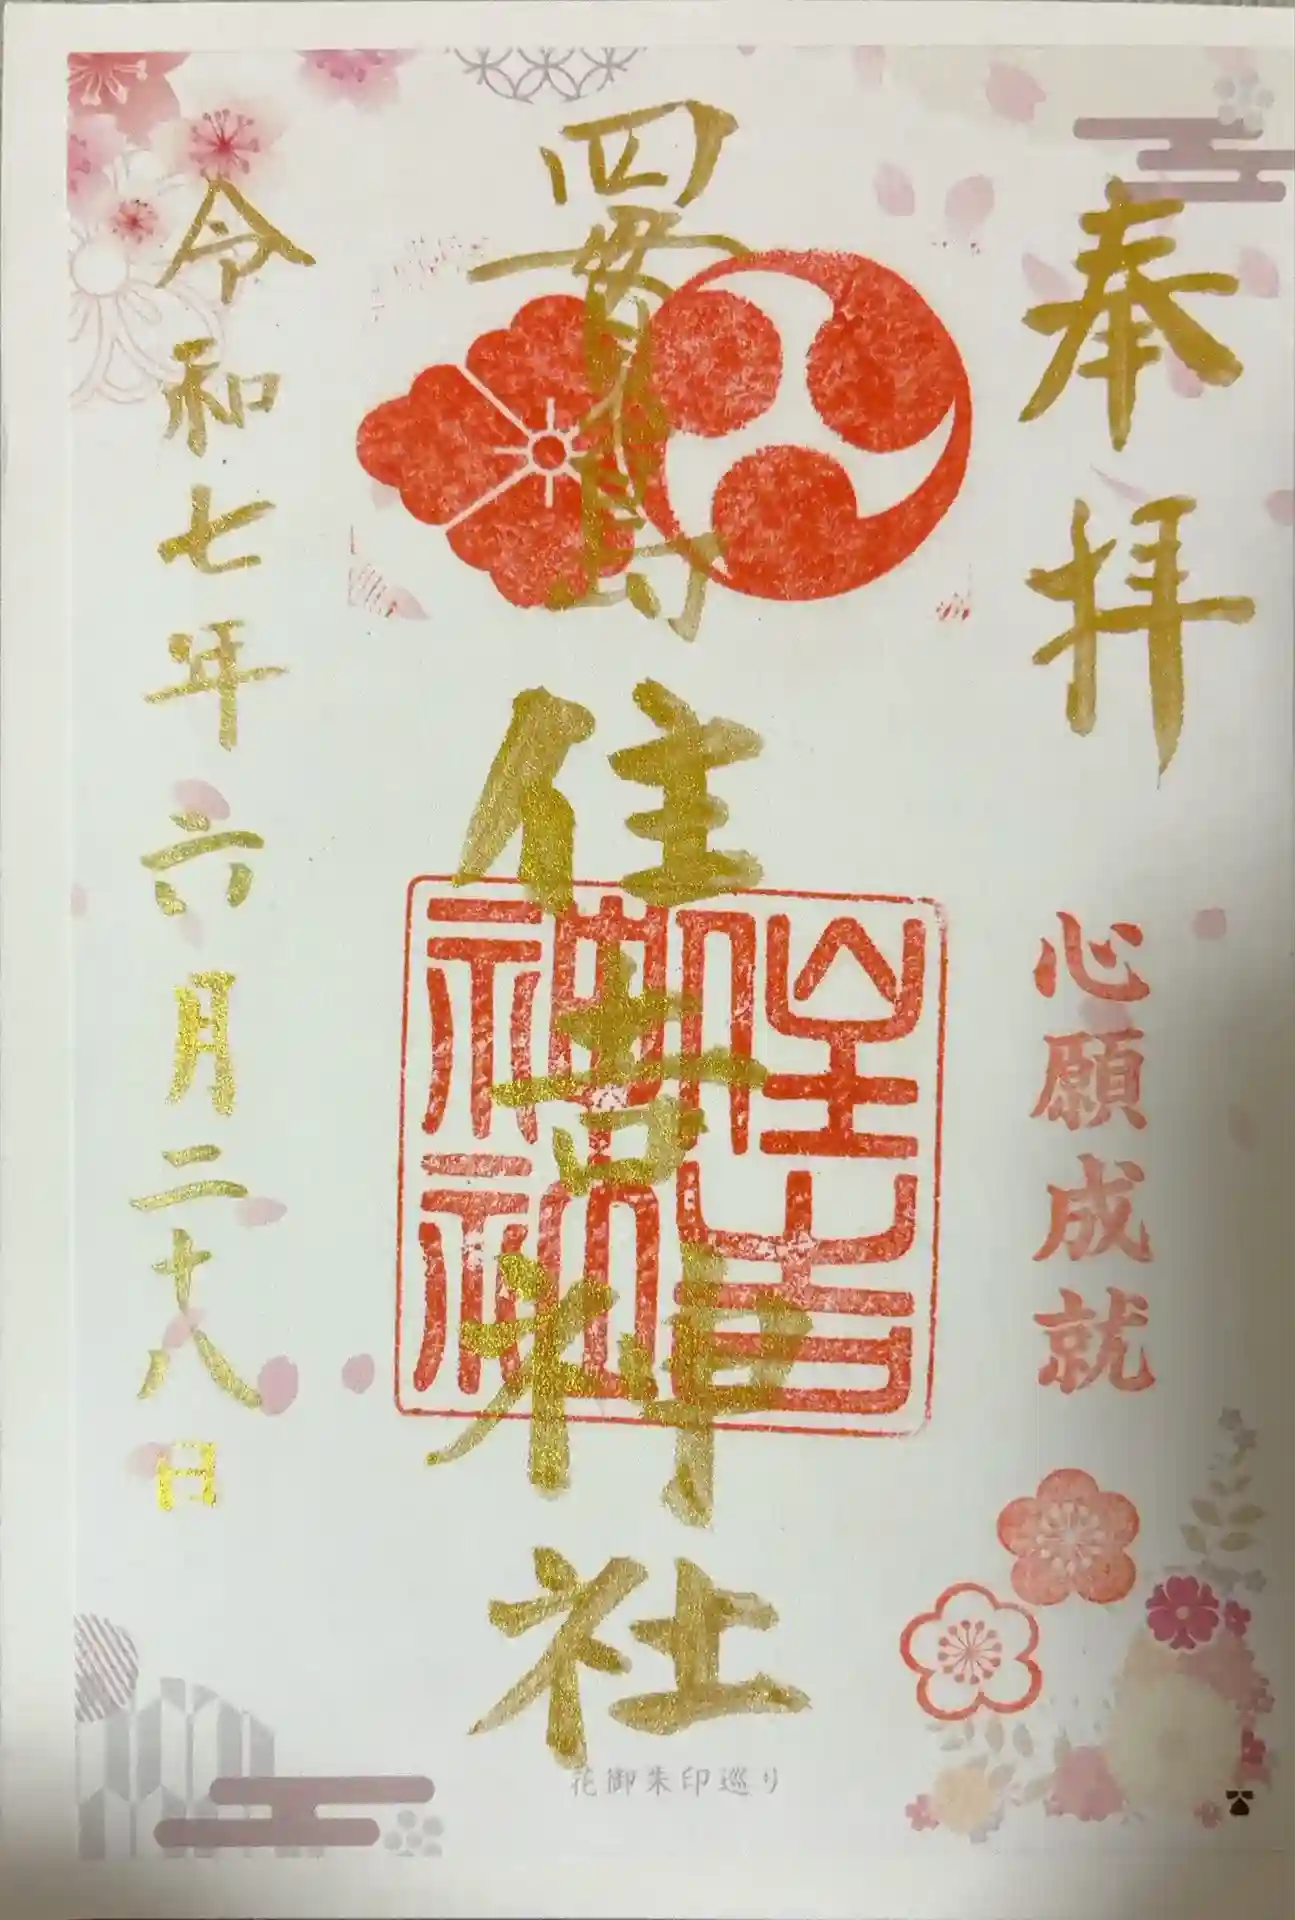 奉拝
心願成就
四貫島
住吉神社
住吉
神社
令和七年六月二十八日
花御朱印巡り